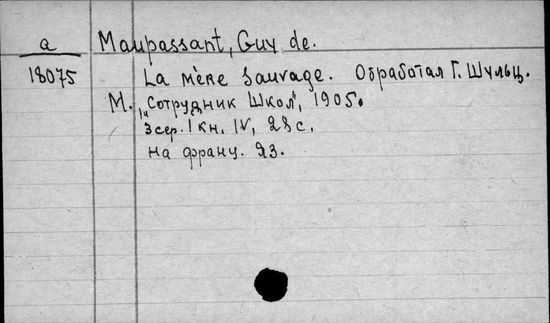 a
Maupassant, Guy de.
18075
La mère Sauvage. Обработал Г. Шульц.
М., "Сотрудник Школ", 1905.
3 сер. I кн. IV, 28 с.
на франц. яз.